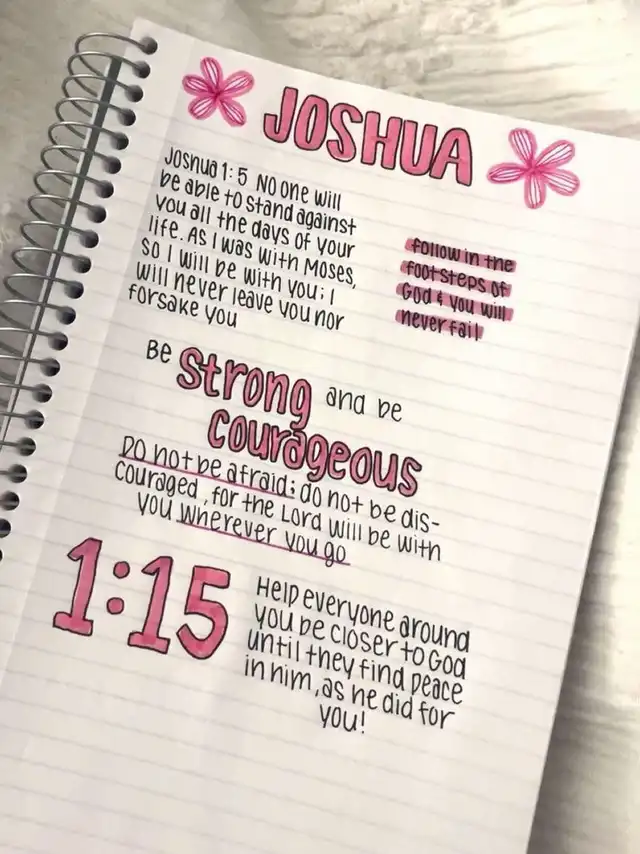 JOSHUA
Joshua 1:5 No one will
be able to stand against
you all the days of your
life. As I was with Moses,
so I will be with you; I
will never leave you nor
forsake you
follow in the
footsteps of
God & you will
never fail
Be Strong and be
courageous
Do not be afraid; do not be dis-
couraged, for the Lord will be with
you wherever you go
1:15
Help everyone around
you be closer to God
until they find peace
in him, as he did for
you!